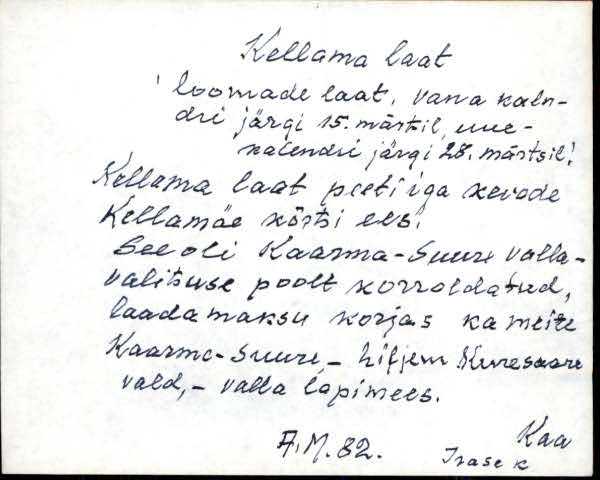 Kellama laat
! loomade laat, vana kaln-
dri järgi 15. märtsil, uue-
kalendri järgi 28. märtsil!
Kellama laat peeti iga kevade
Kellamäe kõrtsi ees.
See oli Kaarma-Suure valla-
valitsuse poolt korraldatud,
laadamaksu korjas ka meite
Kaarma-Suure, - hiljem Kuresaare
vald, - valla läpimees.
A.M. 82. Kaa
Irase k